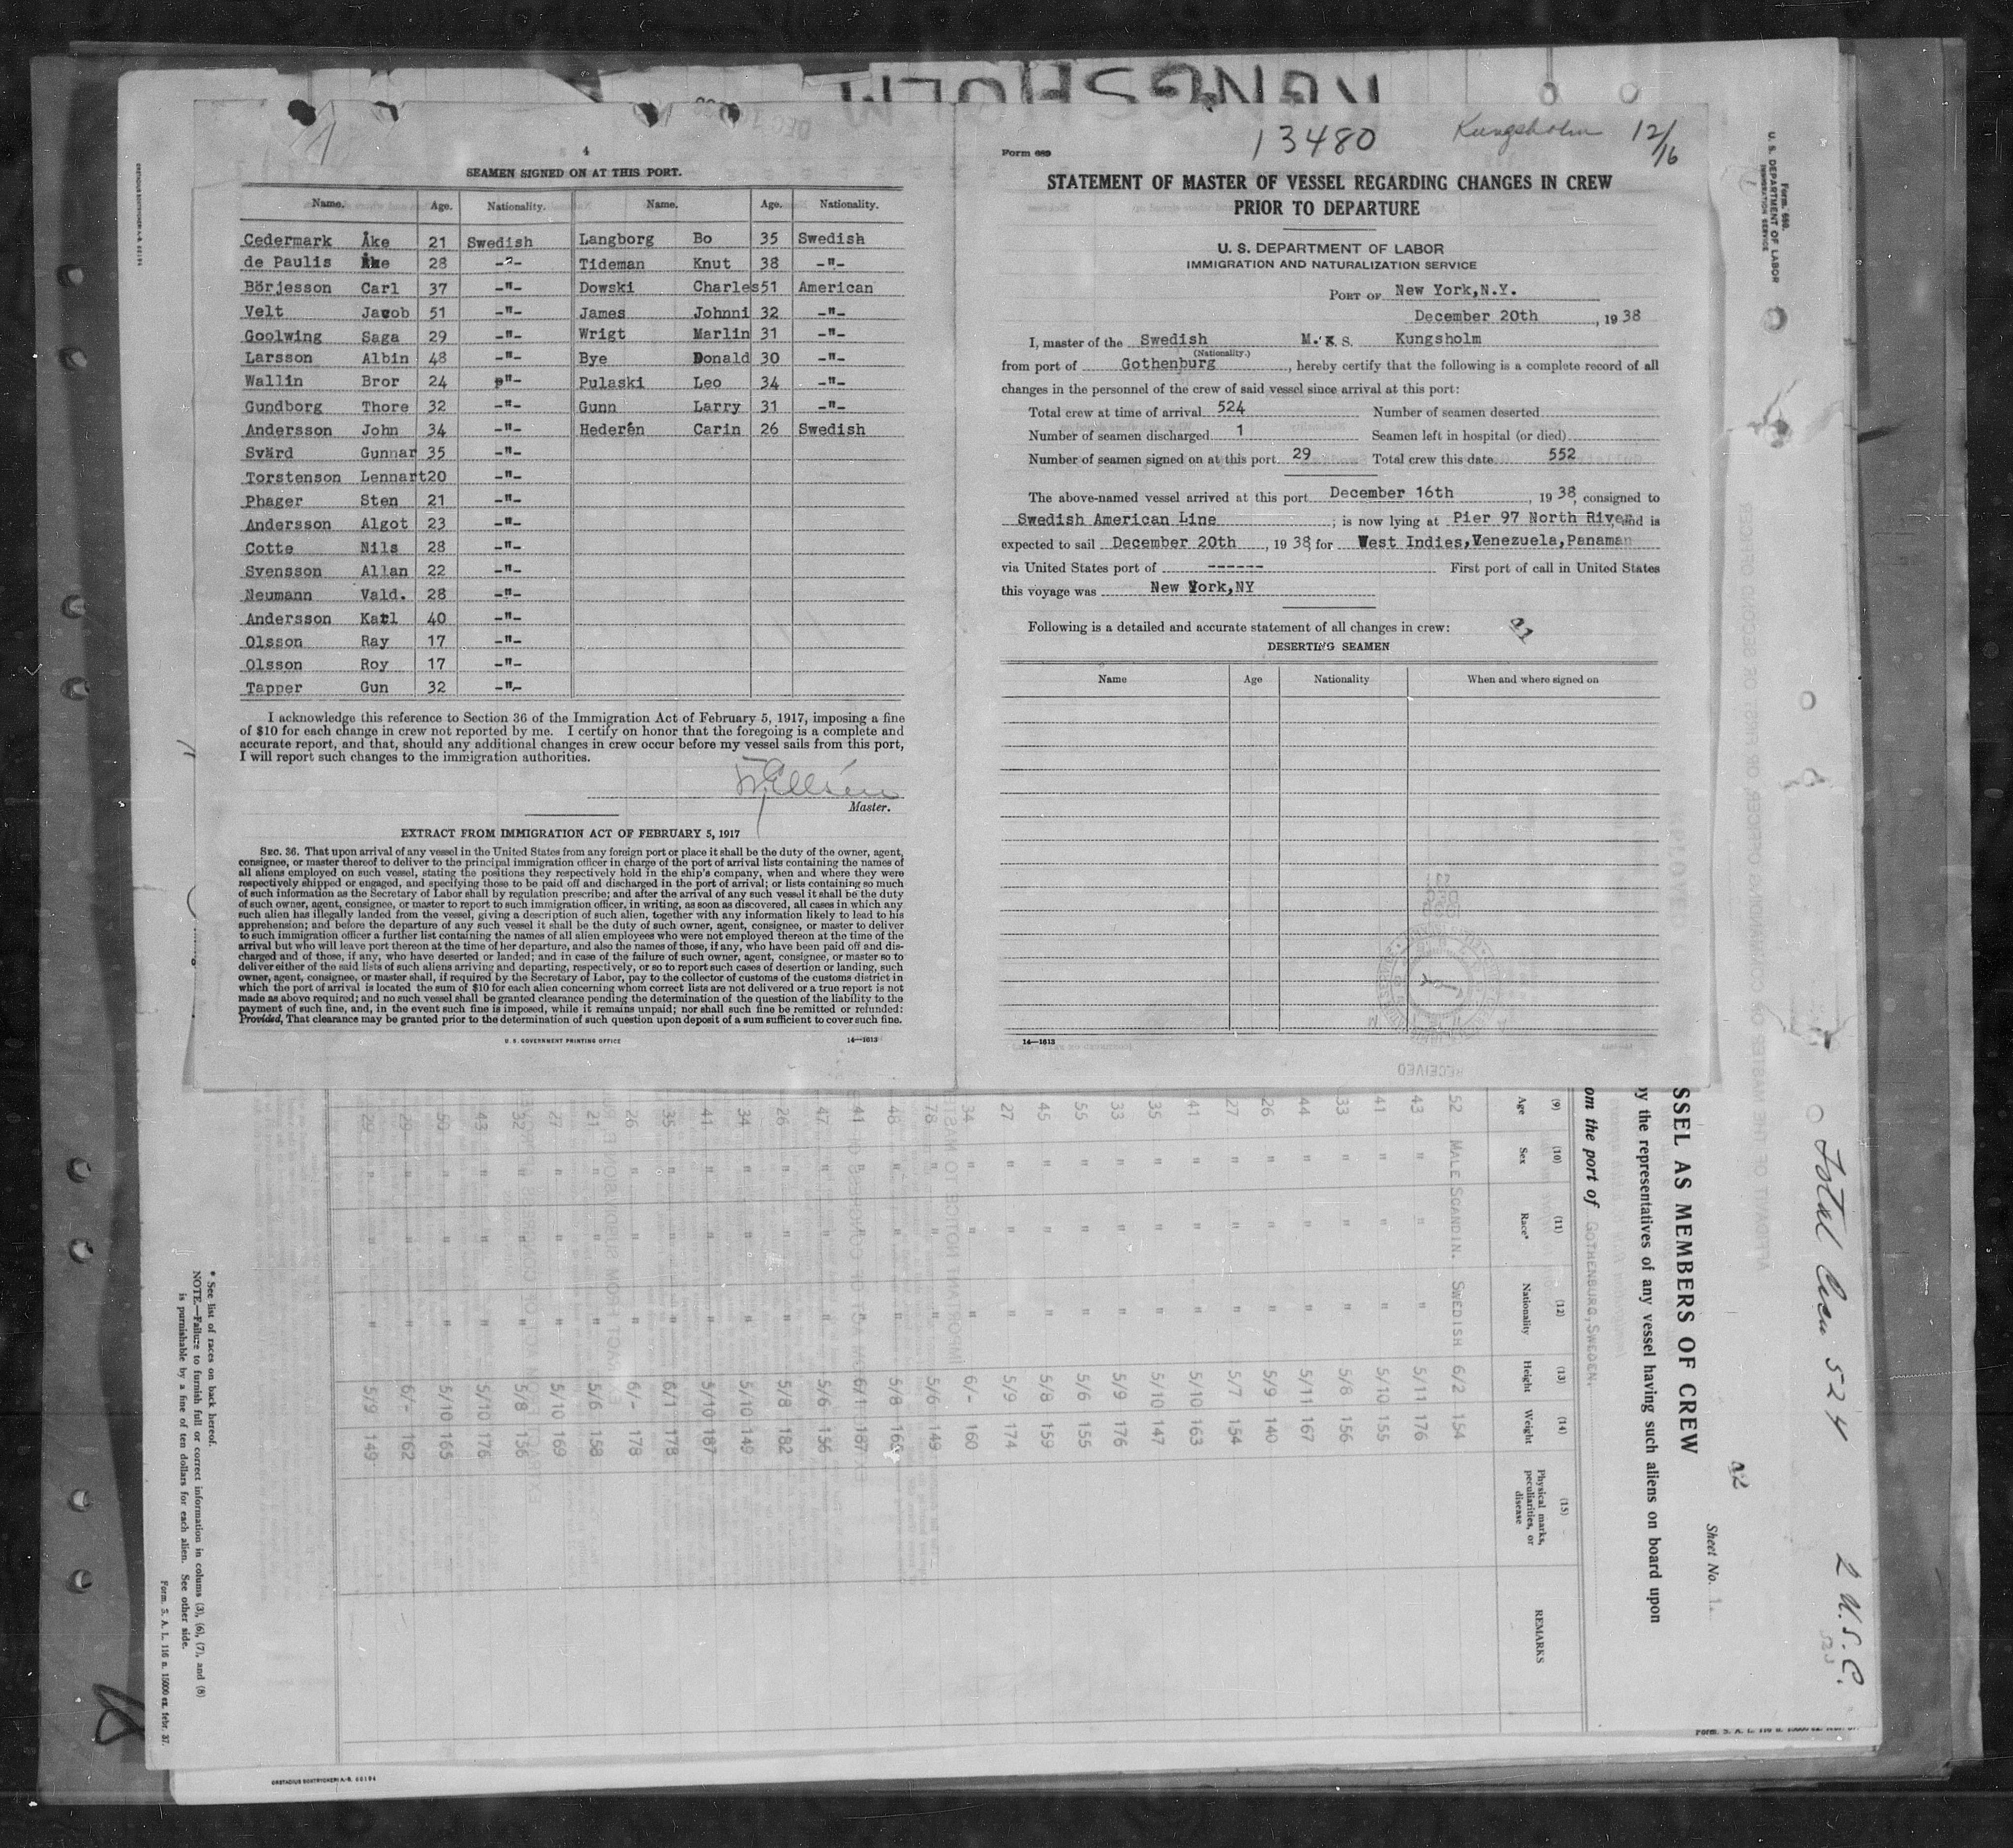 KUNGSHOLM
4
SEAMEN SIGNED ON AT THIS PORT.
Name. Age. Nationality. Name. Age. Nationality.
Cedermark Åke 21 Swedish Langborg Bo 35 Swedish
de Paulis Åke 28 -"- Tideman Knut 38 -"-
Börjesson Carl 37 -"- Dowski Charles 51 American
Velt Jacob 51 -"- James Johnni 32 -"-
Goolwing Saga 29 -"- Wrigt Marlin 31 -"-
Larsson Albin 48 -"- Bye Donald 30 -"-
Wallin Bror 24 -"- Pulaski Leo 34 -"-
Gundborg Thore 32 -"- Gunn Larry 31 -"-
Andersson John 34 -"- Hederén Carin 26 Swedish
Svärd Gunnar 35 -"-
Torstenson Lennart 20 -"-
Phager Sten 21 -"-
Andersson Algot 23 -"-
Cotte Nils 28 -"-
Svensson Allan 22 -"-
Neumann Vald. 28 -"-
Andersson Karl 40 -"-
Olsson Ray 17 -"-
Olsson Roy 17 -"-
Tapper Gun 32 -"-
I acknowledge this reference to Section 36 of the Immigration Act of February 5, 1917, imposing a fine
of $10 for each change in crew not reported by me. I certify on honor that the foregoing is a complete and
accurate report, and that, should any additional changes in crew occur before my vessel sails from this port,
I will report such changes to the immigration authorities.
Master.
EXTRACT FROM IMMIGRATION ACT OF FEBRUARY 5, 1917
SEC. 36. That upon arrival of any vessel in the United States from any foreign port or place it shall be the duty of the owner, agent,
consignee, or master thereof to deliver to the principal immigration officer in charge of the port of arrival lists containing the names of
all aliens employed on such vessel, stating the positions they respectively hold in the ship's company, when and where they were
respectively shipped or engaged, and specifying those to be paid off and discharged in the port of arrival; or lists containing so much
of such information as the Secretary of Labor shall by regulation prescribe; and after the arrival of any such vessel it shall be the duty
of such owner, agent, consignee, or master to report to such immigration officer, in writing, as soon as discovered, all cases in which any
such alien has illegally landed from the vessel, giving a description of such alien, together with any information likely to lead to his
apprehension; and before the departure of any such vessel it shall be the duty of such owner, agent, consignee, or master to deliver
to such immigration officer a further list containing the names of all alien employees who were not employed thereon at the time of the
arrival but who will leave port thereon at the time of her departure, and also the names of those, if any, who have been paid off and dis-
charged and of those, if any, who have deserted or landed; and in case of the failure of such owner, agent, consignee, or master so to
deliver either of the said lists of such aliens arriving and departing, respectively, or so to report such cases of desertion or landing, such
owner, agent, consignee, or master shall, if required by the Secretary of Labor, pay to the collector of customs of the customs district in
which the port of arrival is located the sum of $10 for each alien concerning whom correct lists are not delivered or a true report is not
made as above required; and no such vessel shall be granted clearance pending the determination of the question of the liability to the
payment of such fine, and, in the event such fine is imposed, while it remains unpaid; nor shall such fine be remitted or refunded:
Provided, That clearance may be granted prior to the determination of such question upon deposit of a sum sufficient to cover such fine.
U. S. GOVERNMENT PRINTING OFFICE 14—1613
13480 Kungsholm 12/16
Form 689
STATEMENT OF MASTER OF VESSEL REGARDING CHANGES IN CREW
PRIOR TO DEPARTURE
U. S. DEPARTMENT OF LABOR
IMMIGRATION AND NATURALIZATION SERVICE
PORT OF New York,N.Y.
December 20th, 1938
I, master of the Swedish M. S. Kungsholm
(Nationality.)
from port of Gothenburg, hereby certify that the following is a complete record of all
changes in the personnel of the crew of said vessel since arrival at this port:
Total crew at time of arrival 524 Number of seamen deserted
Number of seamen discharged 1 Seamen left in hospital (or died)
Number of seamen signed on at this port 29 Total crew this date 552
The above-named vessel arrived at this port December 16th, 1938, consigned to
Swedish American Line; is now lying at Pier 97 North River, and is
expected to sail December 20th, 1938, for West Indies,Venezuela,Panaman
via United States port of ------ First port of call in United States
this voyage was New York,NY
Following is a detailed and accurate statement of all changes in crew:
DESERTING SEAMEN
Name Age Nationality When and where signed on
14—1613
RECEIVED
Form 680.
U. S. DEPARTMENT OF LABOR
IMMIGRATION SERVICE
Total Crew 524 2 U.S.C.
Sheet No. 1.
SSEL AS MEMBERS OF CREW
y the representatives of any vessel having such aliens on board upon
om the port of GOTHENBURG,SWEDEN.
(9) (10) (11) (12) (13) (14) (15)
Age Sex Race* Nationality Height Weight Physical marks, peculiarities, or disease REMARKS
52 MALE SCANDIN. SWEDISH 6/2 154
43 " " " 5/11 176
41 " " " 5/10 155
33 " " " 5/8 156
44 " " " 5/11 167
26 " " " 5/9 140
27 " " " 5/7 154
41 " " " 5/10 163
35 " " " 5/10 147
33 " " " 5/9 176
55 " " " 5/6 155
45 " " " 5/8 159
27 " " " 5/9 174
34 " " " 6/- 160
78 " " " 5/6 149
48 " " " 5/8
41 " " " 6/1 187
47 " " " 5/6 156
26 " " " 5/8 182
34 " " " 5/10 149
41 " " " 5/10 187
35 " " " 6/1 178
26 " " " 6/- 178
21 " " " 5/6 158
27 " " " 5/10 169
32 " " " 5/8 156
43 " " " 5/10 176
50 " " " 5/10 165
29 " " " 6/- 162
29 " " " 5/9 149
* See list of races on back hereof.
NOTE.—Failure to furnish full or correct information in colums (3), (6), (7), and (8)
is punishable by a fine of ten dollars for each alien. See other side.
Form. S. A. L. 116 n. 15000 ex. febr. 37.